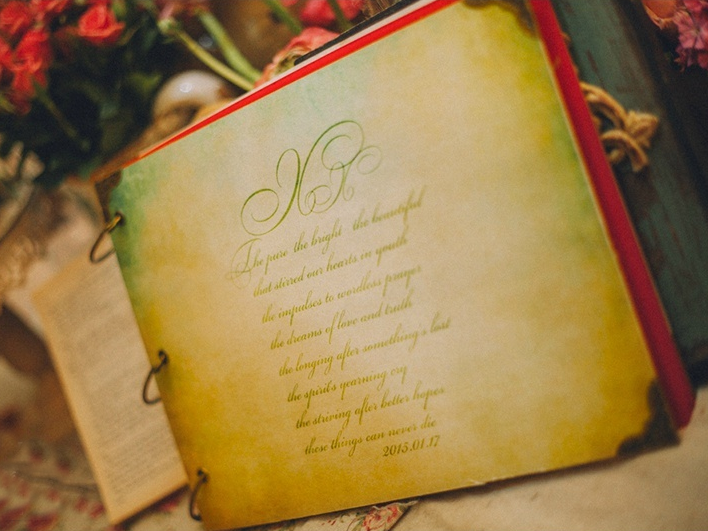 NR
The pure the bright the beautiful
that stirred our hearts in youth
the impulses to wordless prayer
the dreams of love and truth
the longing after something's lost
the spirit's yearning cry
the striving after better hopes
these things can never die
2015.01.17